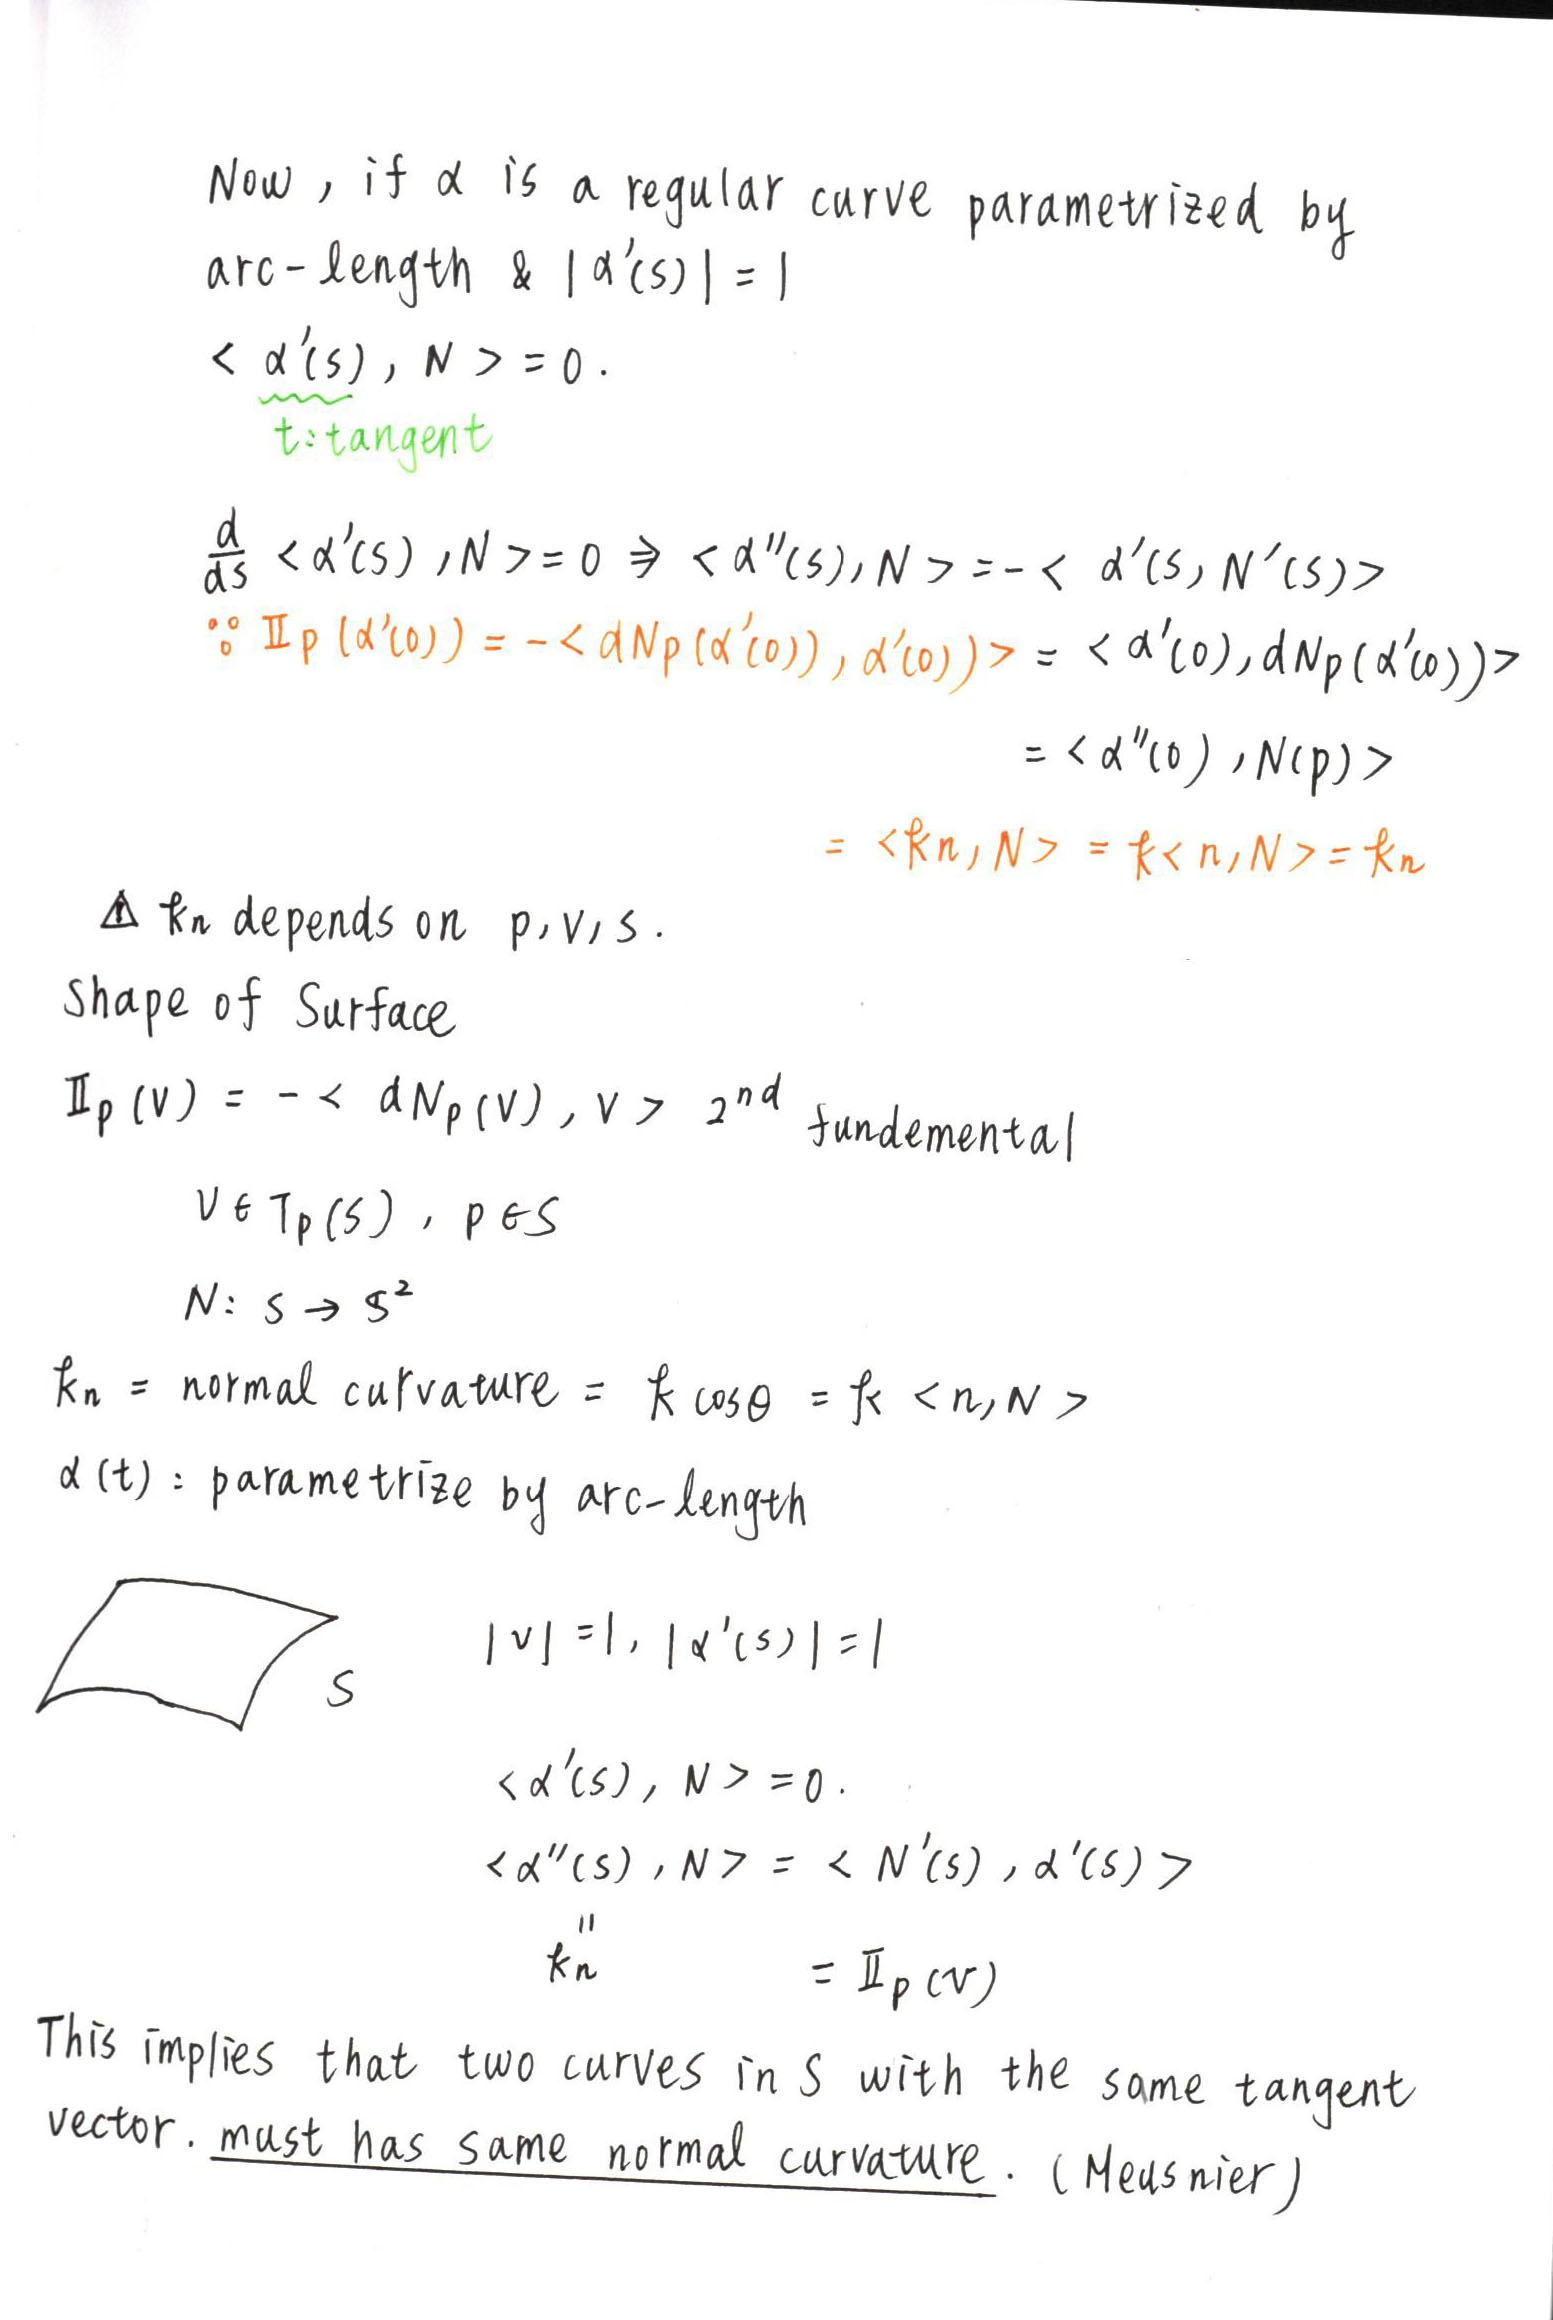 Now, if α is a regular curve parametrized by
arc-length & |α'(s)|=1
<α'(s), N>=0.
t:tangent
d/ds <α'(s), N>=0 ⇒ <α''(s), N>=-<α'(s, N'(s)>
∵ Ⅱp(α'(0)) = -<dNp(α'(0)), α'(0))> = <α'(0), dNp(α'(0))>
= <α''(0), N(p)>
= <kn, N> = k<n, N> = kn
⚠ kn depends on p, v, s.
Shape of Surface
Ⅱp(v) = -<dNp(v), v> 2nd fundemental
v∈Tp(S), p∈S
N: S→S²
kn = normal curvature = k cosθ = k <n, N>
α(t): parametrize by arc-length
|v|=1, |α'(s)|=1
S
<α'(s), N>=0.
<α''(s), N> = <N'(s), α'(s)>
"
kn = Ⅱp(v)
This implies that two curves in S with the same tangent
vector. must has same normal curvature. (Meusnier)